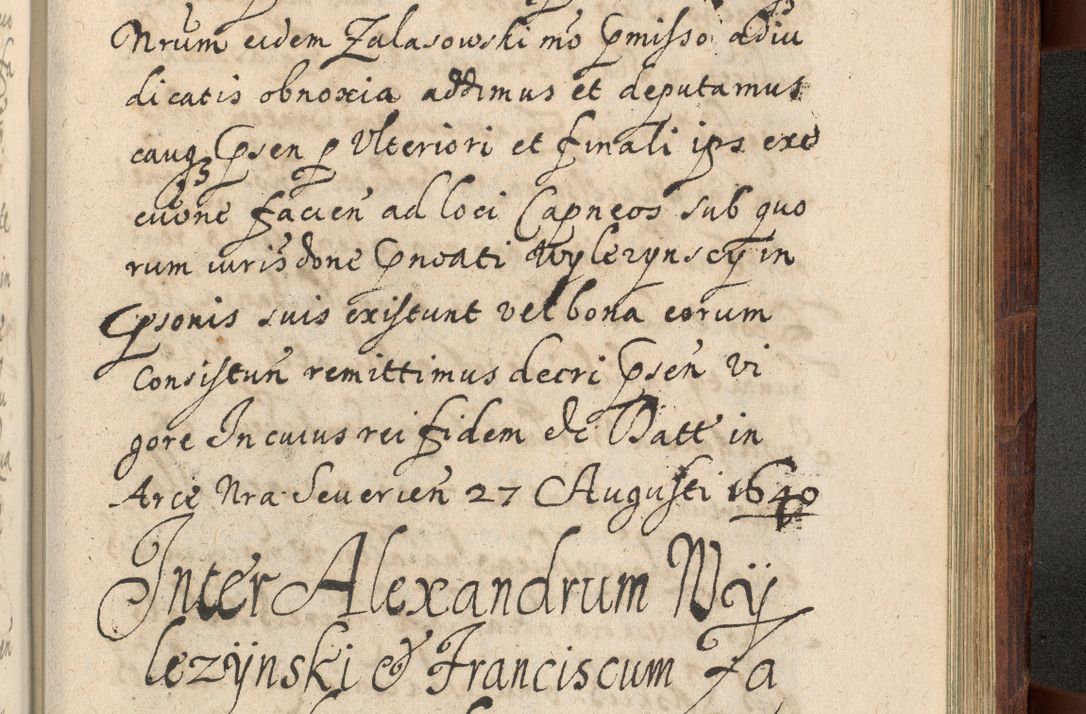 Nrum eidem Zalasowski mo pmisso adiu
dicatis obnoxia addimus et deputamus
causq psen p Ulteriori et finali ips exe
cuone facien ad loci Capneos sub quo
rum iurisdone pnoati Wylezynscy in
psonis suis existunt vel bona eorum
Consistun remittimus decri psen vi
gore In cuius rei fidem etc Datt in
Arce Nra Severien 27 Augusti 1640
Inter Alexandrum Wÿ
lezÿnski & Franciscum Za